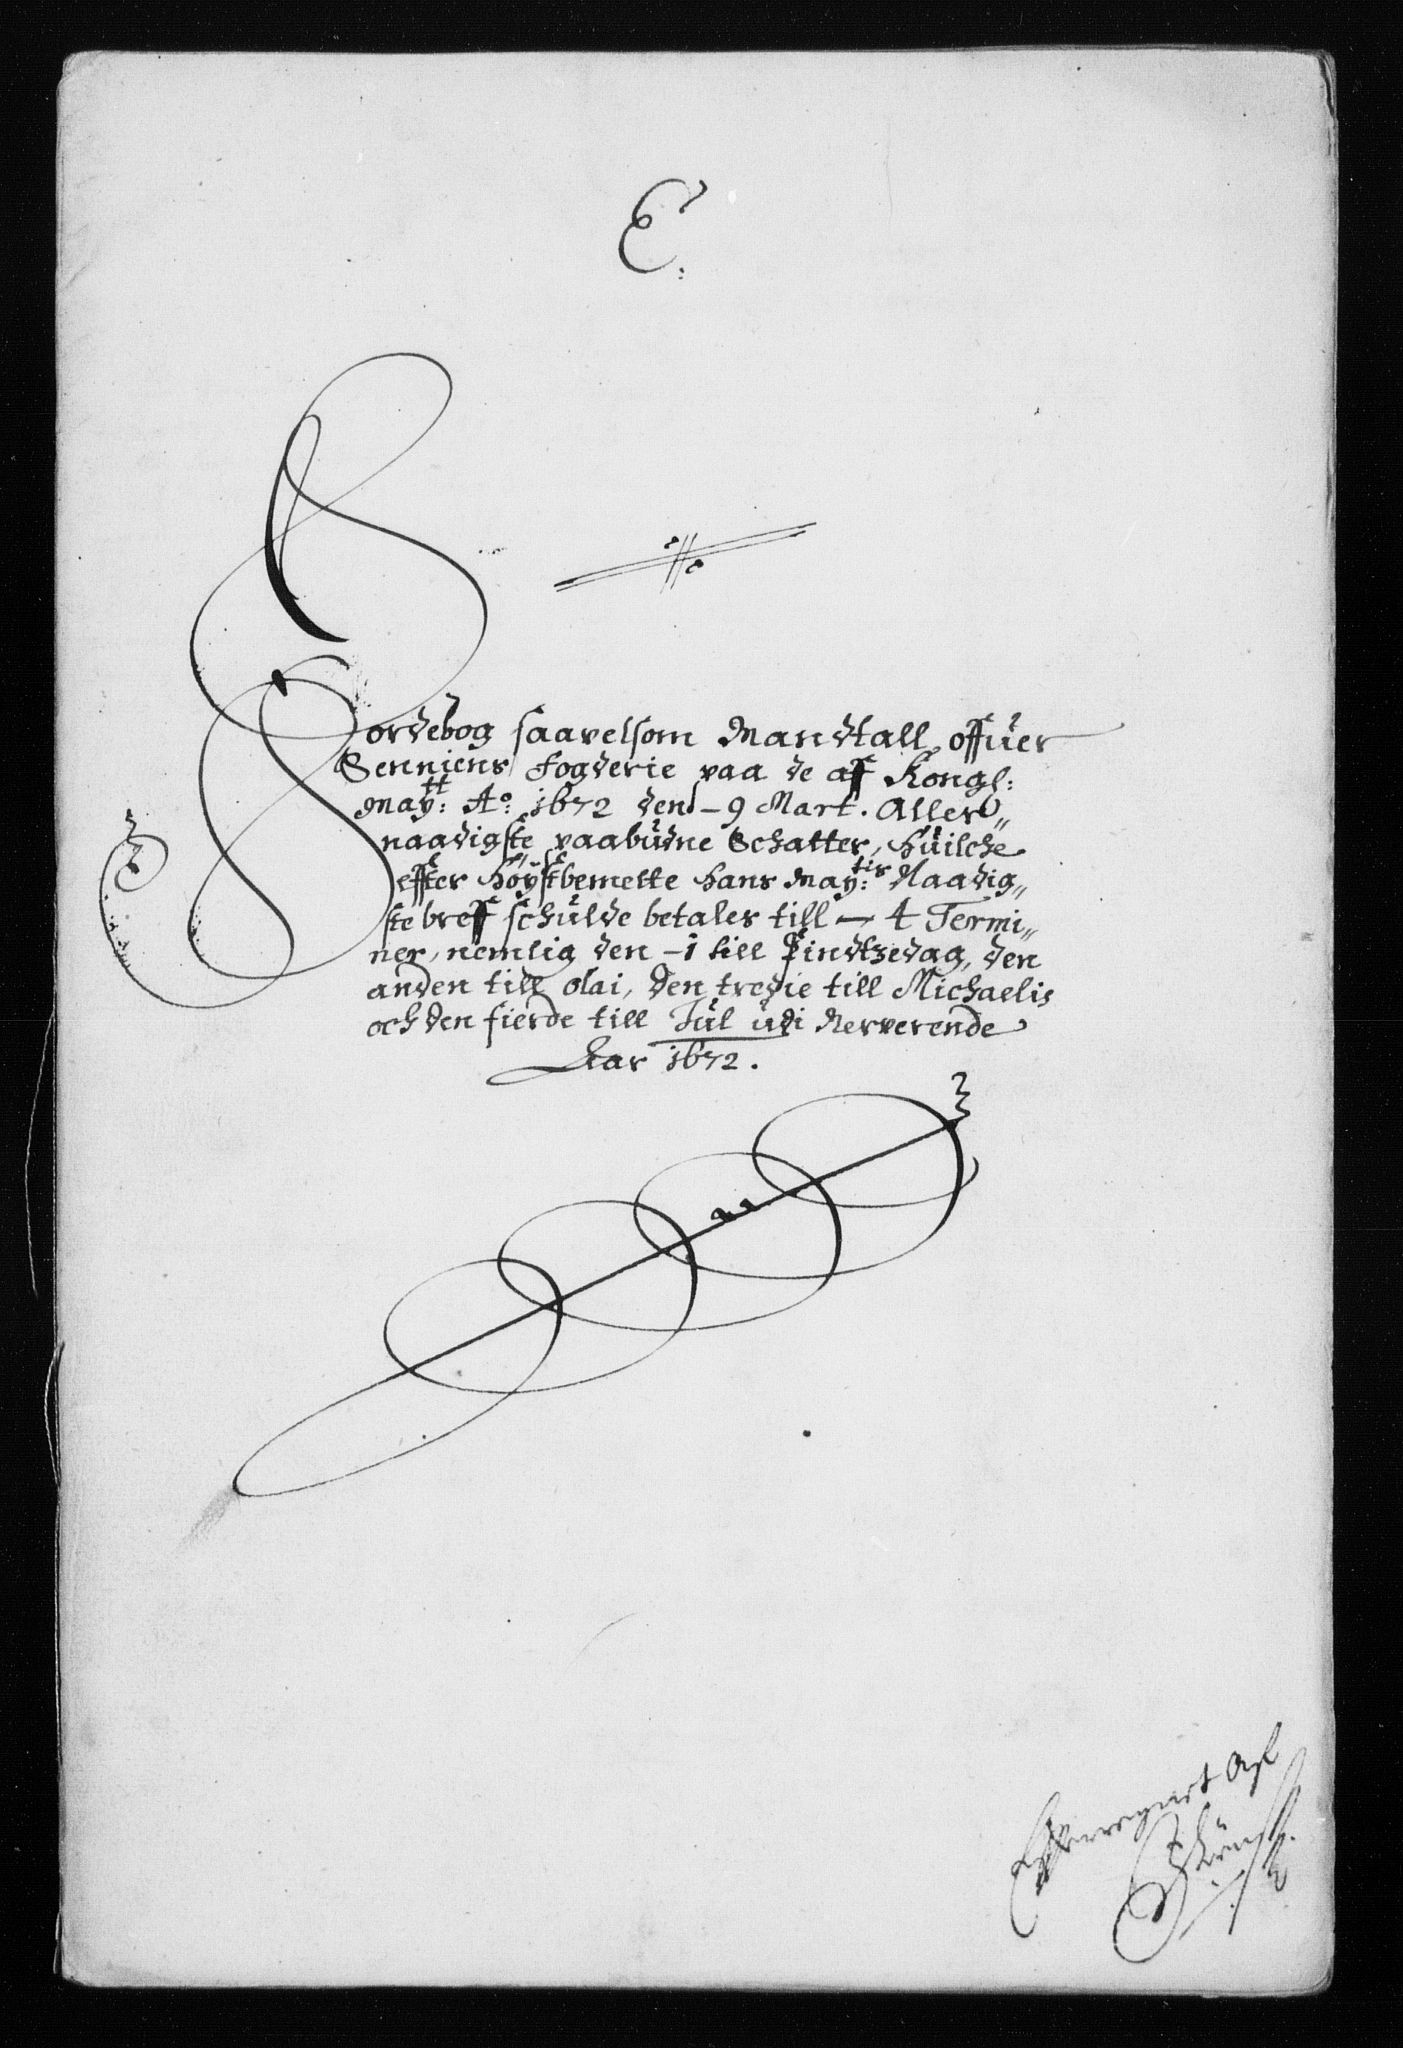 E:
Jordebog saavelsom Mandtall offuer
Senniens fogderie paa de aff Kongl:
May:tt Ao: 1672 den - 9 Mart. Aller„
naadigste paabudne Schatter, huilche
effter höystbemelte hans May:tis Naadig„
ste breff schulde betales till — 4 Termi„
ner, nemlig den - 1 till Pindtzedag, den
anden till olai, den tredie till Michaelis
och den fierde till Jul udi Nerverende
Aar 1672.
Efterregnet Aff